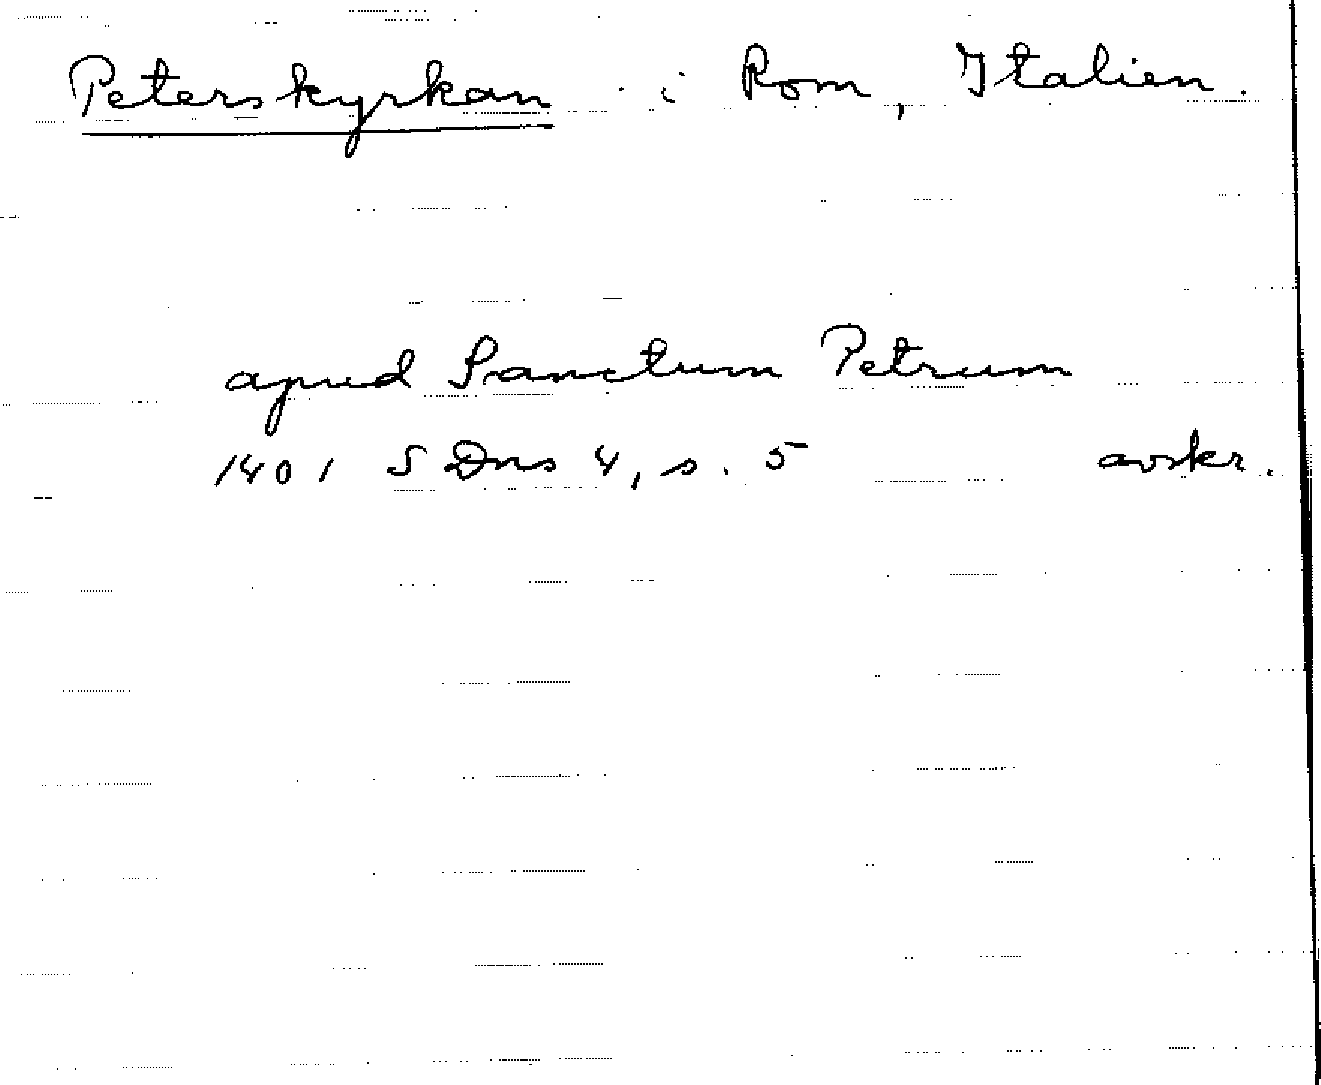 Peterskyrkan i Rom, Italien.
apud Sanctum Petrum
1401 SDns 4, s. 5 avskr.